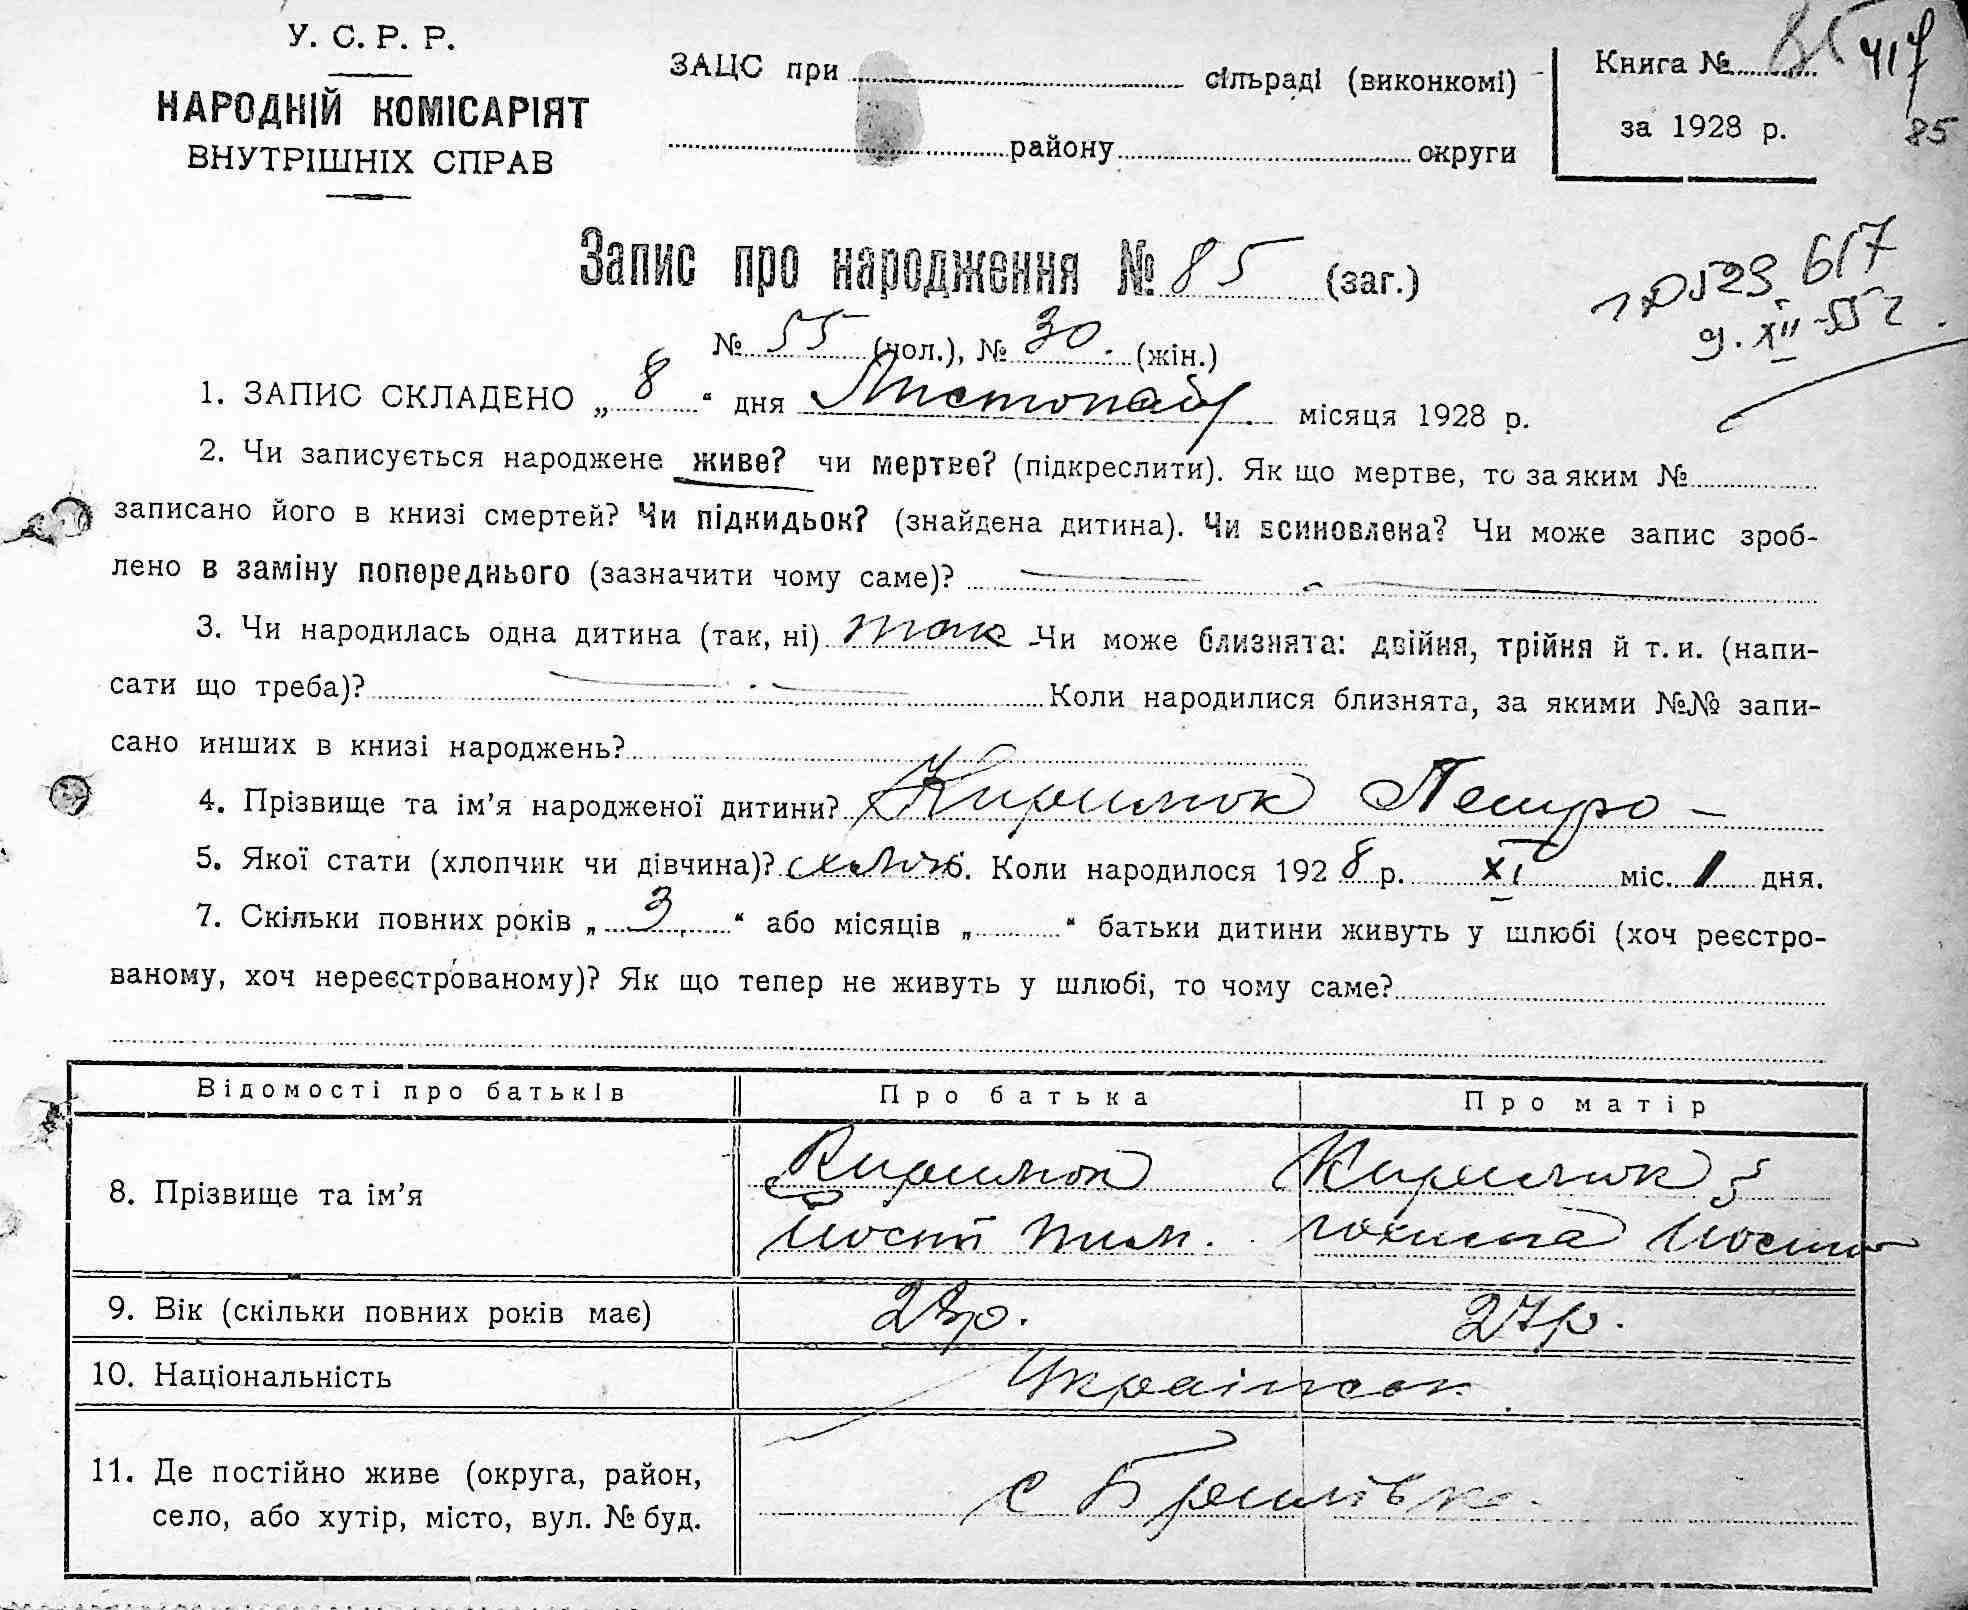 У. С. Р. Р.
НАРОДНІЙ КОМІСАРІЯТ
ВНУТРІШНІХ СПРАВ
ЗАЦС при сільраді (виконкомі)
району округи
Книга №
за 1928 р.
417
85
Запис про народження № 85 (заг.)
№ 55 (чол.), № 30. (жін.)
617
9. XII-55 г.
1. ЗАПИС СКЛАДЕНО „ 8 “ дня Листопада місяця 1928 р.
2. Чи записується народжене живе? чи мертве? (підкреслити). Як що мертве, то за яким №
записано його в книзі смертей? Чи підкидьок? (знайдена дитина). Чи всиновлена? Чи може запис зроб-
лено в заміну попереднього (зазначити чому саме)?
3. Чи народилась одна дитина (так, ні) так Чи може близнята: двійня, трійня й т. и. (напи-
сати що треба)? Коли народилися близнята, за якими №№ запи-
сано инших в книзі народжень?
4. Прізвище та ім’я народженої дитини? Кирилюк Петро —
5. Якої стати (хлопчик чи дівчина)? Коли народилося 1928 р. XI міс. 1 дня.
7. Скільки повних років „ 3 “ або місяців „ “ батьки дитини живуть у шлюбі (хоч реєстро-
ваному, хоч нереєстрованому)? Як що тепер не живуть у шлюбі, то чому саме?
Відомості про батьків Про батька Про матір
8. Прізвище та ім’я Кирилюк Кирилюк
9. Вік (скільки повних років має) 27р.
10. Національність
11. Де постійно живе (округа, район,
село, або хутір, місто, вул. № буд. с